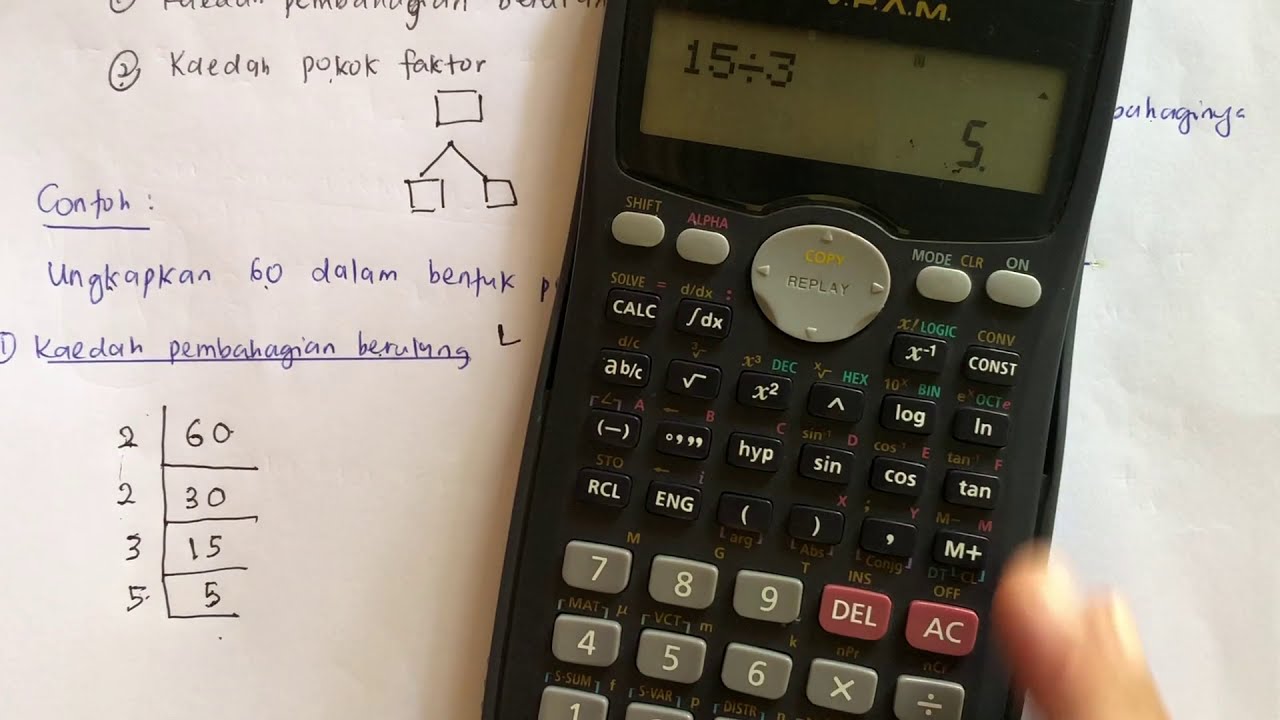 ① Kaedah pembahagian
② Kaedah pokok faktor
bahaginya
Contoh :
Ungkapkan 60 dalam bentuk
① Kaedah pembahagian berulang
2 60
2 30
3 15
5 5
V.P.A.M.
15÷3
5.
SHIFT ALPHA COPY REPLAY MODE CLR ON
SOLVE = d/dx :
CALC ∫dx x! LOGIC CONV
x⁻¹ CONST
d/c ³√ x³ DEC ˣ√ HEX 10ˣ BIN eˣ OCT e
ab/c √ x² ^ log ln
∠ A ← B C sin⁻¹ D cos⁻¹ E tan⁻¹ F
(−) °,,, hyp sin cos tan
STO ← i X ; Y M− M
RCL ENG ( ) , M+
arg Abs Conjg DT CL
M G T INS OFF
7 8 9 DEL AC
MAT μ VCT m k nPr nCr
4 5 6 × ÷
S-SUM f S-VAR p DISTR n
1